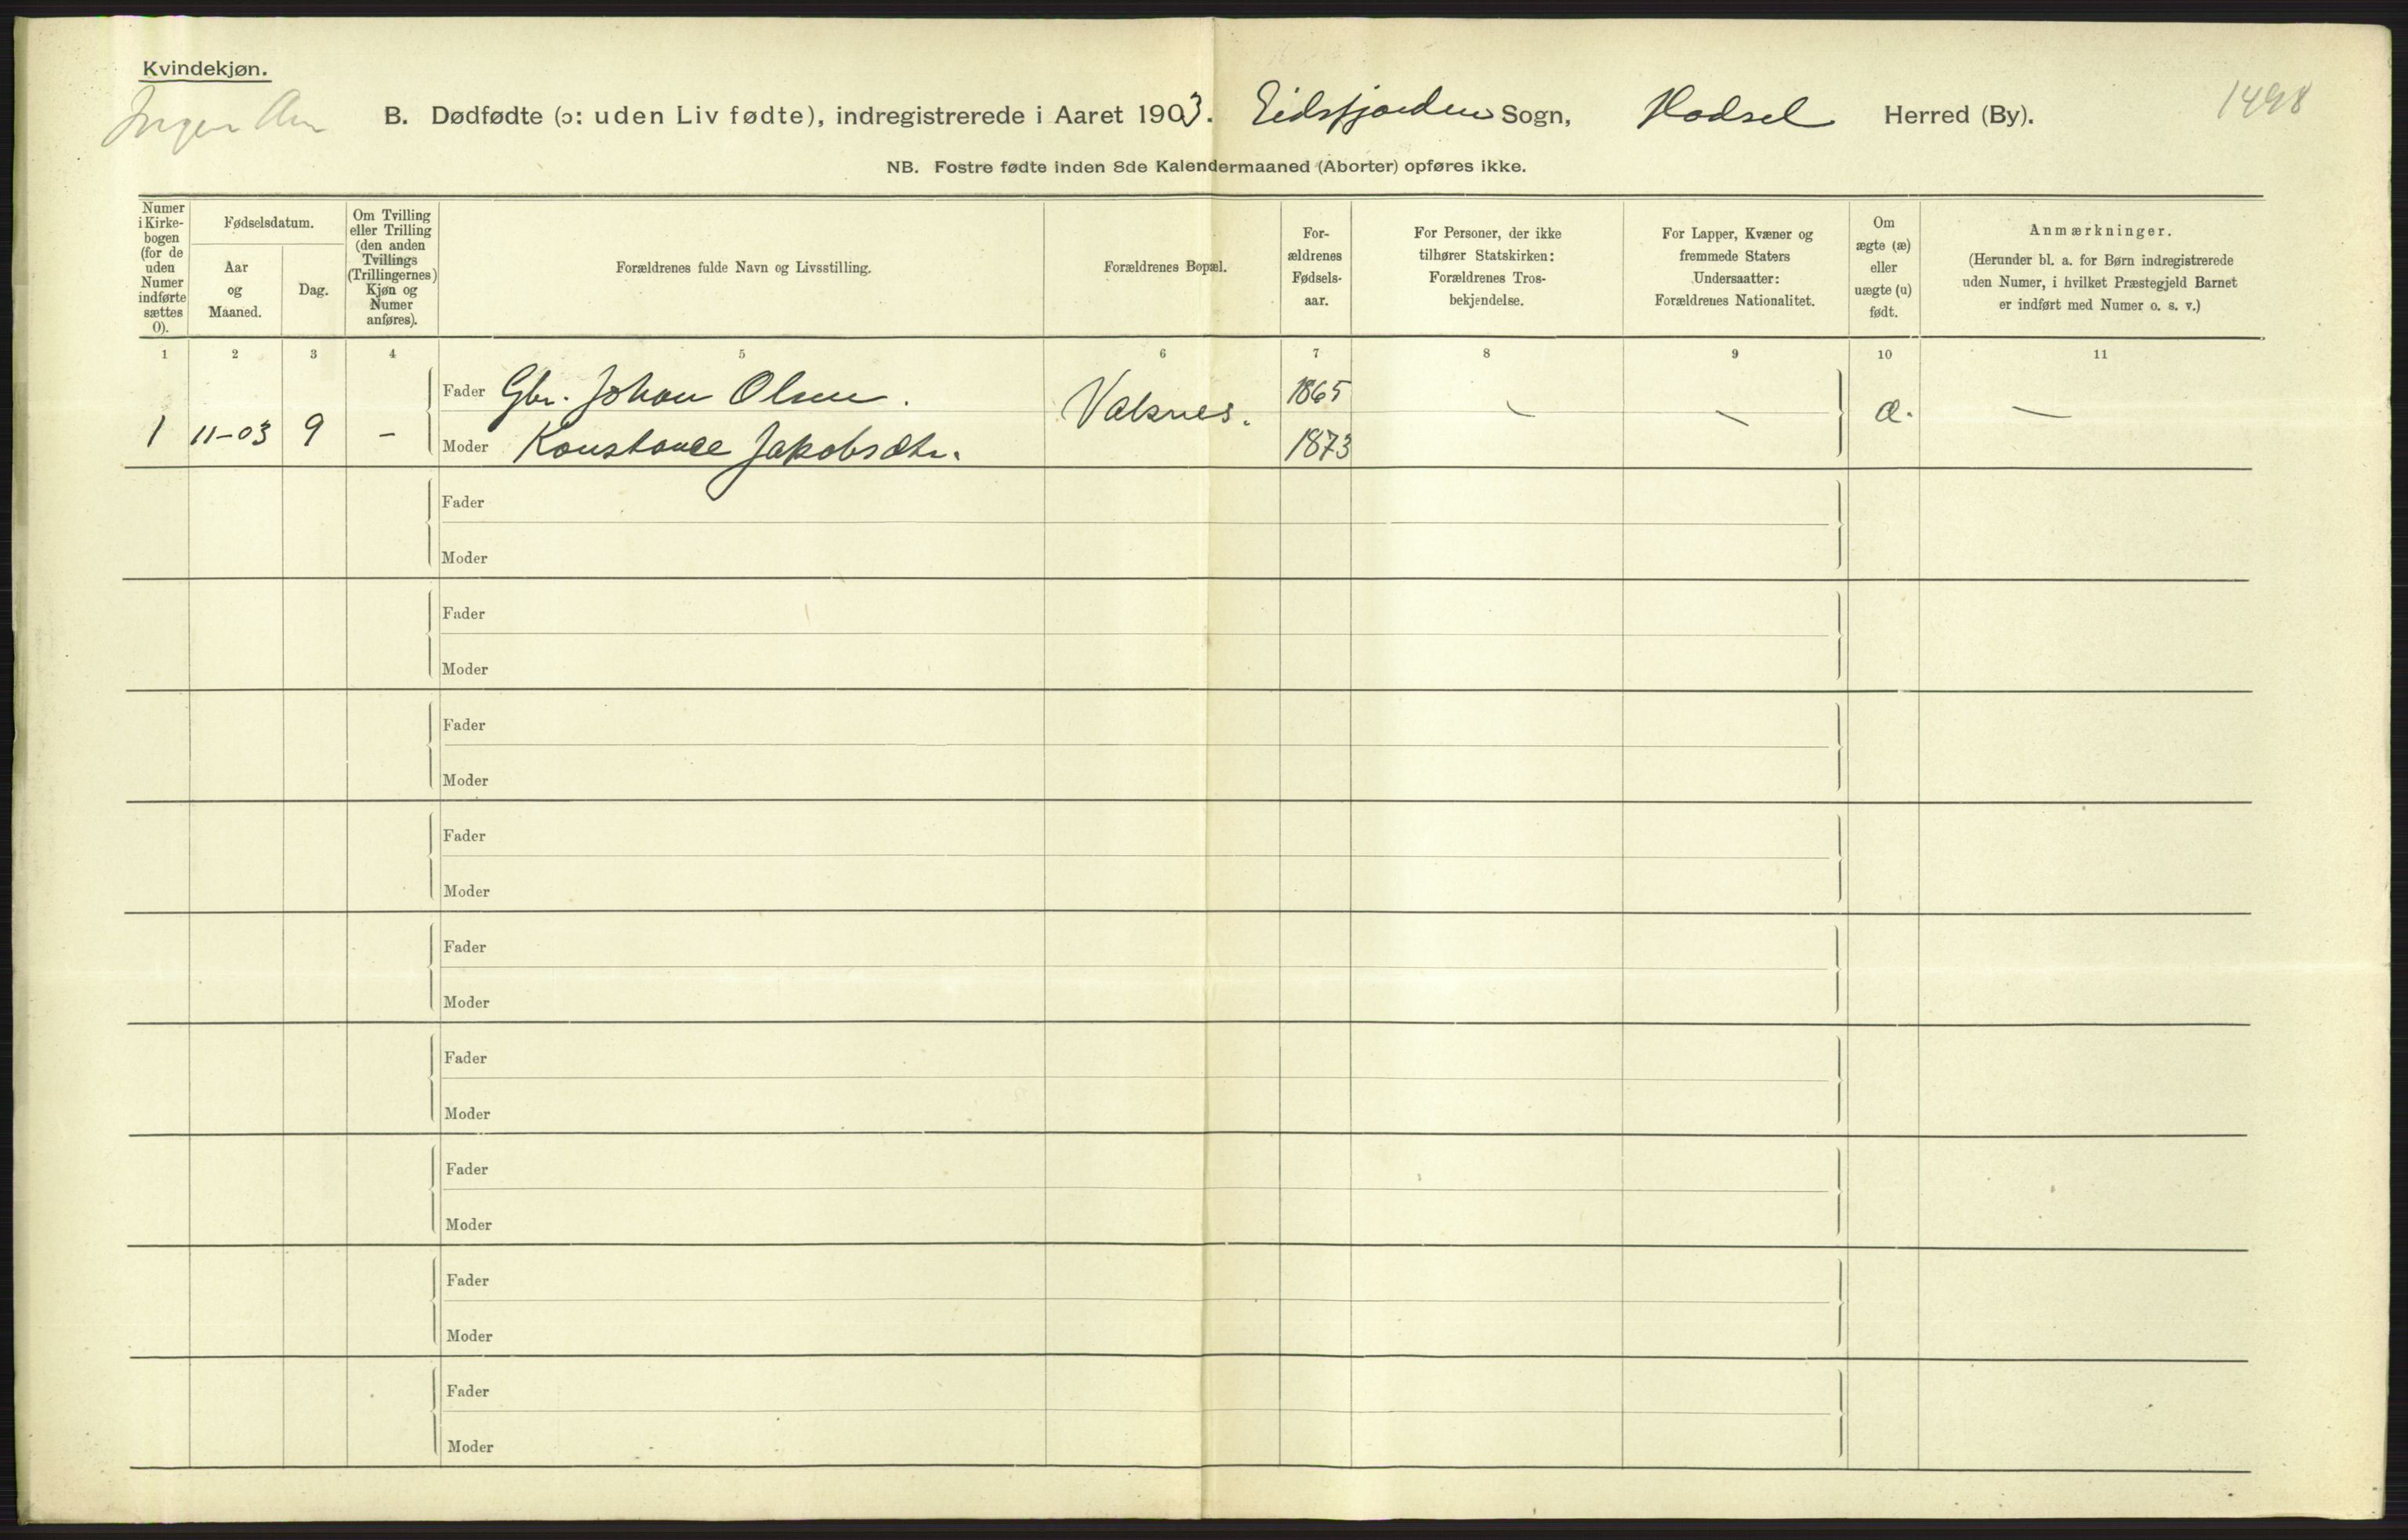 Kvindekjøn.
B. Dødfødte (ɔ: uden Liv fødte), indregistrerede i Aaret 1903. Eidsfjorden Sogn, Hadsel Herred (By).
1498
NB. Fostre fødte inden 8de Kalendermaaned (Aborter) opføres ikke.
Numer i Kirkebogen (for de uden Numer indførte sættes 0).
Fødselsdatum.
Aar og Maaned.
Dag.
Om Tvilling eller Trilling (den anden Tvillings (Trillingernes) Kjøn og Numer anføres).
Forældrenes fulde Navn og Livsstilling.
Forældrenes Bopæl.
For-ældrenes Fødsels-aar.
For Personer, der ikke tilhører Statskirken: Forældrenes Tros-bekjendelse.
For Lapper, Kvæner og fremmede Staters Undersaatter: Forældrenes Nationalitet.
Om ægte (æ) eller uægte (u) født.
Anmærkninger.
(Herunder bl. a. for Børn indregistrerede uden Numer, i hvilket Præstegjeld Barnet er indført med Numer o. s. v.)
1 2 3 4 5 6 7 8 9 10 11
Fader Gbr. Johan Olsen. Valsnes. 1865 — — æ. —
1 11-03 9 - Moder Konstance Jakobsdtr. 1873
Fader
Moder
Fader
Moder
Fader
Moder
Fader
Moder
Fader
Moder
Fader
Moder
Fader
Moder
Fader
Moder
Fader
Moder